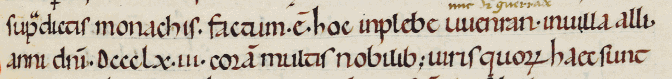 nunc Di guerran
sup̄dictis monachis. factum. ē. hoc inplebe uuenran. inuilla alli.
anni dn̄i. Dccclx. iii. corā multis nobilib; uiris quorꝝ haec sunt